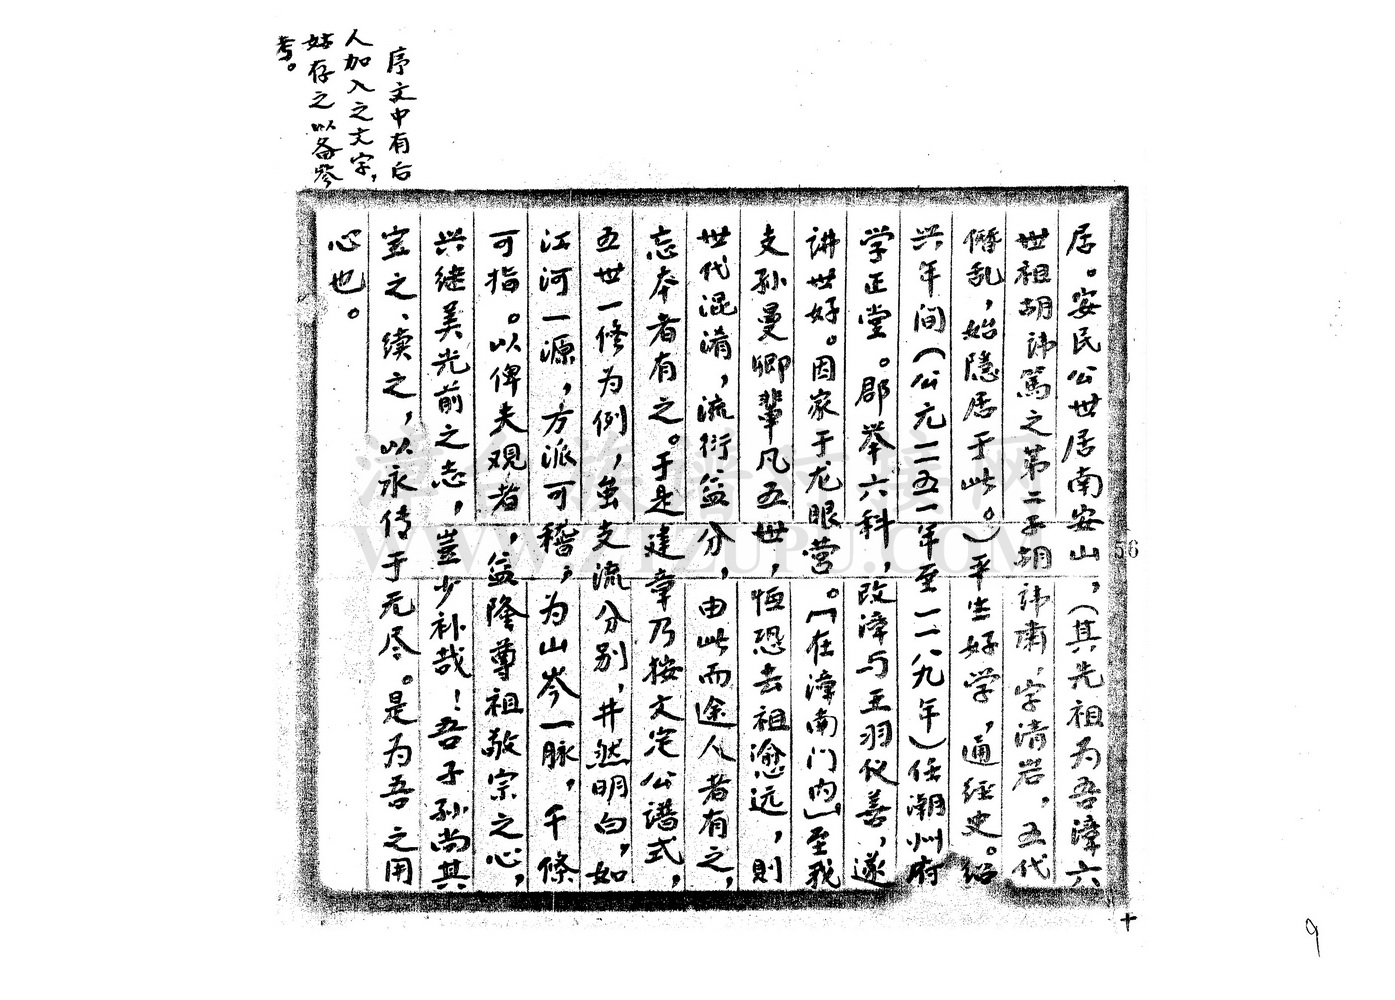 序文中有后
人加入之文字，
姑存之以备参
考。
居。安民公世居南安山，（其先祖为吾漳六
世祖胡讳笃之第二子胡讳肃，字清岩，五代
僭乱，始隐居于此。）平生好学，通经史。绍
兴年间（公元一一五一年至一一八九年）任潮州府
学正堂。郡举六科，改漳与王羽仪善，遂
讲世好。因家于龙眼营。「在漳南门内」至我
支孙曼卿辈凡五世，恒恐去祖愈远，則
世代混淆，流衍益分，由此而途人者有之，
忘本者有之。于是建章乃按文定公谱式，
五世一修为例，虽支流分别，井然明白，如
江河一源，方派可稽，为山岑一脉，千條
可指。以俾夫观者，益隆尊祖敬宗之心，
兴继美光前之志，岂少补哉！吾子孙尚其
宝之、续之，以永传于无尽。是为吾之用
心也。
56
十
9
津台族谱对接网
WWW.ZTZUPU.COM